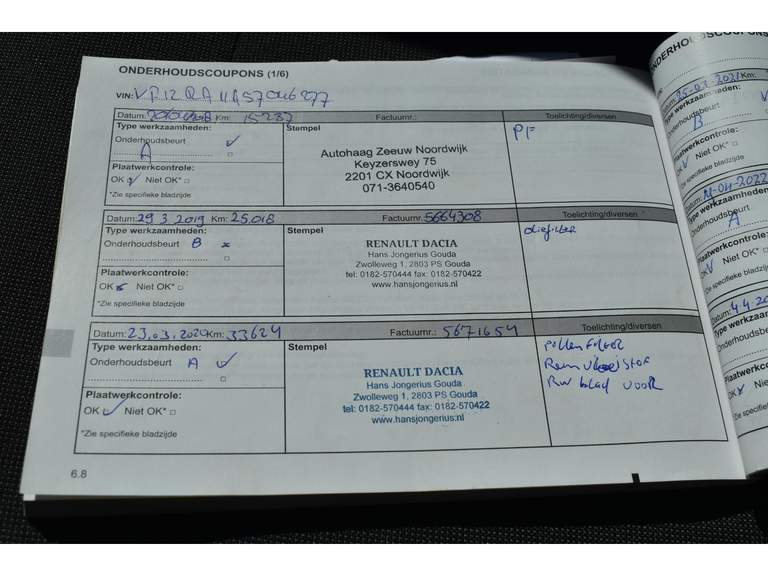 ONDERHOUDSCOUPONS (1/6)
VIN:
Datum: Km: 15237 Factuurnr.: Toelichting/diversen
Type werkzaamheden: Stempel PF
Onderhoudsbeurt
A
Plaatwerkcontrole:
OK Niet OK*
*Zie specifieke bladzijde
Autohaag Zeeuw Noordwijk
Keyzerswey 75
2201 CX Noordwijk
071-3640540
Datum: 29 3 2019 Km: 25.018 Factuurnr.: 5664308 Toelichting/diversen
Type werkzaamheden: Stempel oliefilter
Onderhoudsbeurt B
Plaatwerkcontrole:
OK Niet OK*
*Zie specifieke bladzijde
RENAULT DACIA
Hans Jongerius Gouda
Zwolleweg 1, 2803 PS Gouda
tel: 0182-570444 fax: 0182-570422
www.hansjongerius.nl
Datum: 23.03.2020 Km: 33624 Factuurnr.: 5671654 Toelichting/diversen
Type werkzaamheden: Stempel
Onderhoudsbeurt A
Plaatwerkcontrole:
OK Niet OK*
*Zie specifieke bladzijde
RENAULT DACIA
Hans Jongerius Gouda
Zwolleweg 1, 2803 PS Gouda
tel: 0182-570444 fax: 0182-570422
www.hansjongerius.nl
pollenfilter
Remvloeistof
Rw blad voor
6.8
ONDERHOUDSCOUPONS
Km:
Type werkzaamheden:
Onderhoudsbeurt
B
Plaatwerkcontrole:
OK Niet OK*
*Zie specifieke bladzijde
Type werkzaamheden:
Onderhoudsbeurt
A
Plaatwerkcontrole:
OK Niet OK*
*Zie specifieke bladzijde
Datum:
Type werkzaamheden:
Onderhoudsbeurt
Plaatwerkcontrole:
OK Niet OK*
*Zie specifieke bladzijde